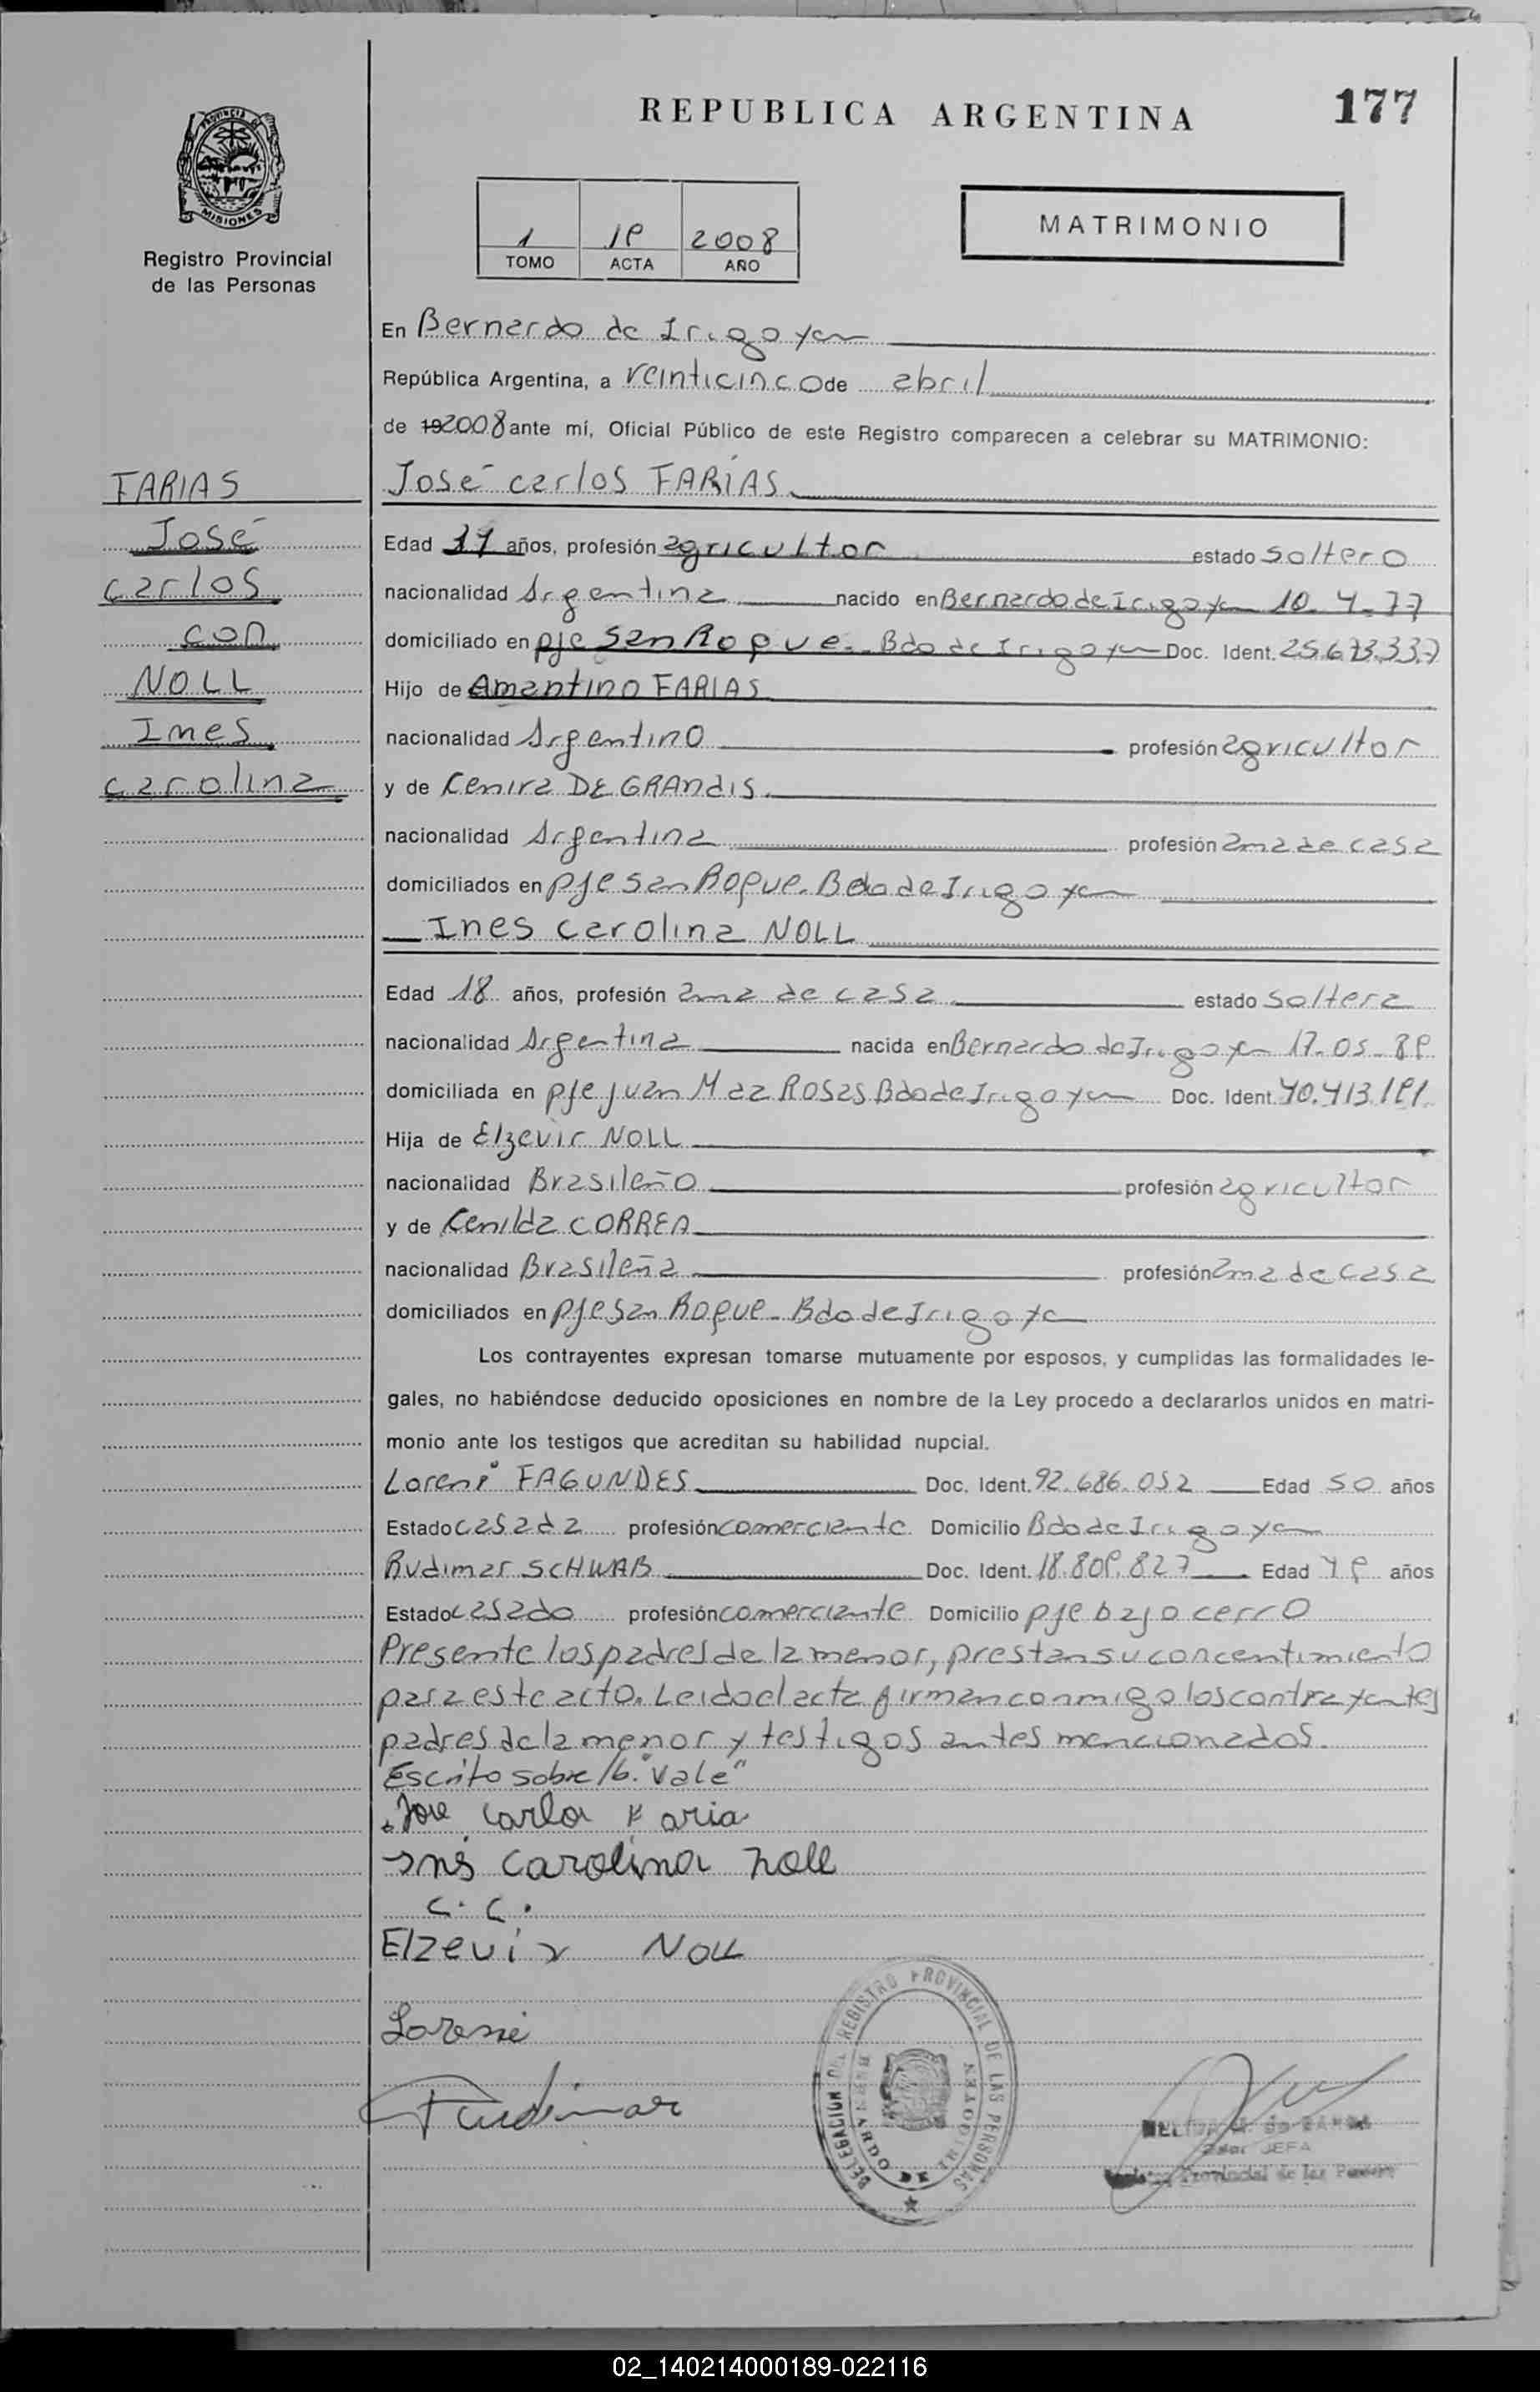 REPUBLICA ARGENTINA
177
PROVINCIA DE
MISIONES
Registro Provincial
de las Personas
1 19 2008
TOMO ACTA AÑO
MATRIMONIO
En Bernardo de Irigoyen
República Argentina, a veinticinco de abril
de 192008 ante mí, Oficial Público de este Registro comparecen a celebrar su MATRIMONIO:
José carlos FARIAS
FARIAS
José
carlos
con
NOLL
Ines
carolina
Edad 31 años, profesión agricultor estado soltero
nacionalidad Argentina nacido en Bernardo de Irigoyen 10-4-77
domiciliado en pje San Roque. Bdo de Irigoyen Doc. Ident. 25.673.337
Hijo de Amantino FARIAS
nacionalidad Argentino profesión agricultor
y de Cenira DE GRAndis
nacionalidad Argentina profesión ama de casa
domiciliados en pje San Roque. Bdo de Irigoyen
Ines carolina NOLL
Edad 18 años, profesión ama de casa estado soltera
nacionalidad Argentina nacida en Bernardo de Irigoyen 17-05-89
domiciliada en pje Juan M de Rosas Bdo de Irigoyen Doc. Ident. 40.413.191
Hija de Elzevir NOLL
nacionalidad Brasileño profesión agricultor
y de Cenilda CORREA
nacionalidad Brasileña profesión ama de casa
domiciliados en pje San Roque - Bdo de Irigoyen
Los contrayentes expresan tomarse mutuamente por esposos, y cumplidas las formalidades le-
gales, no habiéndose deducido oposiciones en nombre de la Ley procedo a declararlos unidos en matri-
monio ante los testigos que acreditan su habilidad nupcial.
Loreni FAGUNDES Doc. Ident. 92.686.052 Edad 50 años
Estado casada profesión comerciante Domicilio Bdo de Irigoyen
Rudimar SCHWAB Doc. Ident. 18.809.827 Edad 49 años
Estado casado profesión comerciante Domicilio pje bajo cerro
Presente los padres de la menor, prestan su concentimiento
para este acto. Leido el acta firman conmigo los contrayentes
padres de la menor y testigos antes mencionados.
Escrito sobre 16. "Vale"
Jose Carlos Faria
Ines Carolina Noll
C. C.
Elzevir NOLL
Loreni
Rudimar
DELEGACION DEL REGISTRO PROVINCIAL DE LAS PERSONAS
BERNARDO DE IRIGOYEN
JEFA
Registro Provincial de las Personas
02_140214000189-022116